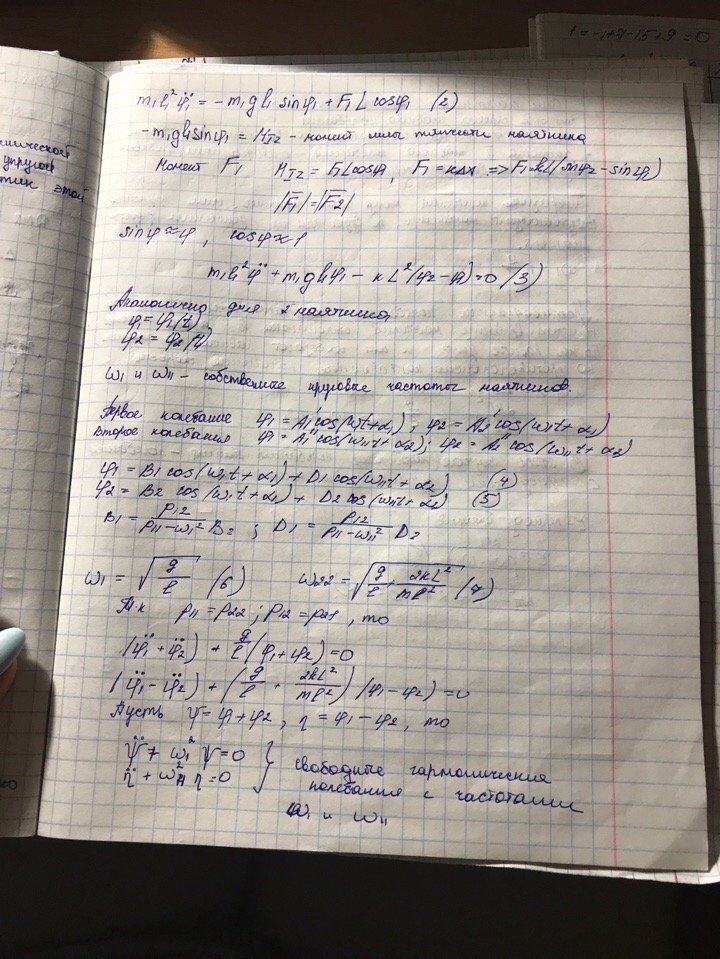 1 = -1+7-15+9 = 0
m₁l₁²φ̈₁ = -m₁gl₁ sinφ₁ + F₁L cosφ₁ (2)
-m₁gl₁ sinφ₁ = M_T2 - момент силы тяжести маятника
Момент F₁ M_T2 = F₁Lcosφ₁, F₁ = kΔx => F₁ = kL(sinφ₂ - sinφ₁)
|F̅₁| = |F̅₂|
sinφ ≈ φ, cosφ ≈ 1
m₁l₁²φ̈ + m₁gl₁φ₁ - kL²(φ₂ - φ₁) = 0 (3)
упругой
этой
Аналогично для 2 маятника
φ₁ = φ₁(t)
φ₂ = φ₂(t)
ω_I и ω_II - собственные круговые частоты маятников.
Первое колебание φ₁ = A₁' cos(ω_I t + α₁), φ₂ = A₂' cos(ω_I t + α₁)
Второе колебания φ₁ = A₁'' cos(ω_II t + α₂); φ₂ = A₂'' cos(ω_II t + α₂)
φ₁ = B₁ cos(ω_I t + α₁) + D₁ cos(ω_II t + α₂) (4)
φ₂ = B₂ cos(ω_I t + α₁) + D₂ cos(ω_II t + α₂) (5)
B₁ = p₁₂/(p₁₁ - ω_I²) B₂ ; D₁ = p₁₂/(p₁₁ - ω_II²) D₂
ω₁ = √(g/l) (6) ω₂₂ = √(g/l + 2kL²/ml²) (7)
Т.к p₁₁ = p₂₂ ; p₁₂ = p₂₁, то
(φ̈₁ + φ̈₂) + g/l (φ₁ + φ₂) = 0
(φ̈₁ - φ̈₂) + (g/l + 2kL²/ml²) (φ₁ - φ₂) = 0
Пусть ψ = φ₁ + φ₂, η = φ₁ - φ₂, то
ψ̈ + ω_I² ψ = 0
η̈ + ω_II² η = 0
} свободные гармонические
колебания с частотами
ω_I и ω_II